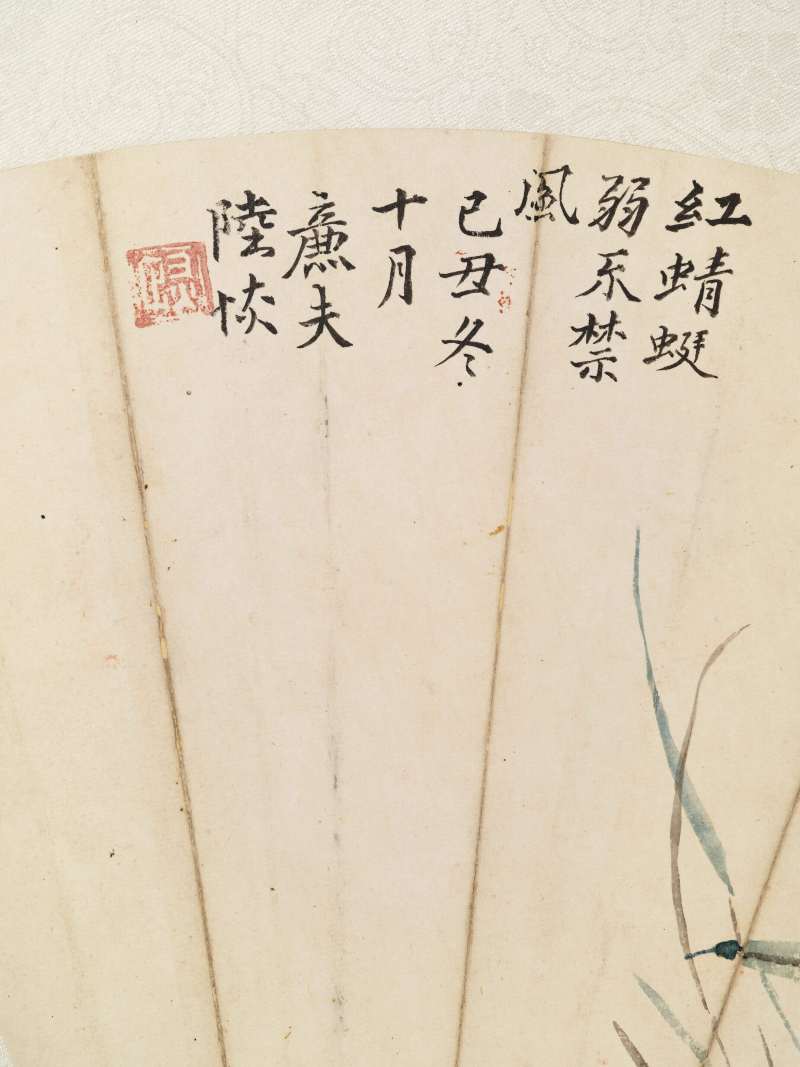 紅蜻蜓
弱不禁
風
己丑冬
十月
廉夫
陸恢